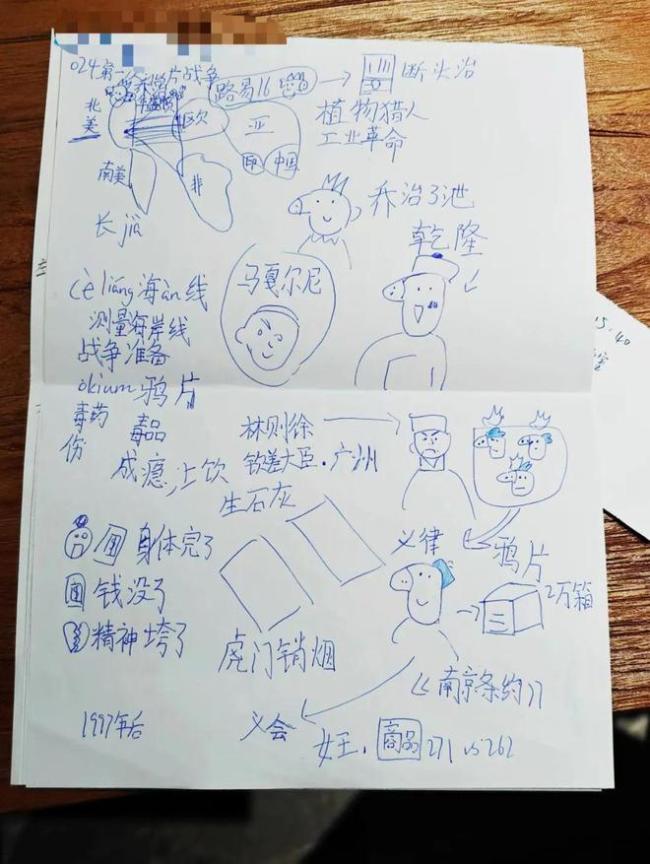 024第一次鸦片战争
路易16
断头治
北美
欧
亚
印
中国
植物猎人
工业革命
南美
非
长jiā
乔治3世
乾隆
马戛尔尼
cè liáng海àn线
测量海岸线
战争准备
ókium鸦片
毒药
毒品
伤
成瘾,上饮
林则徐
钦差大臣·广州
生石灰
义律
鸦片
身体完了
钱没了
精神垮了
2万箱
虎门销烟
《南京条约》
1997年后
义会
女王,商品271 vs 262